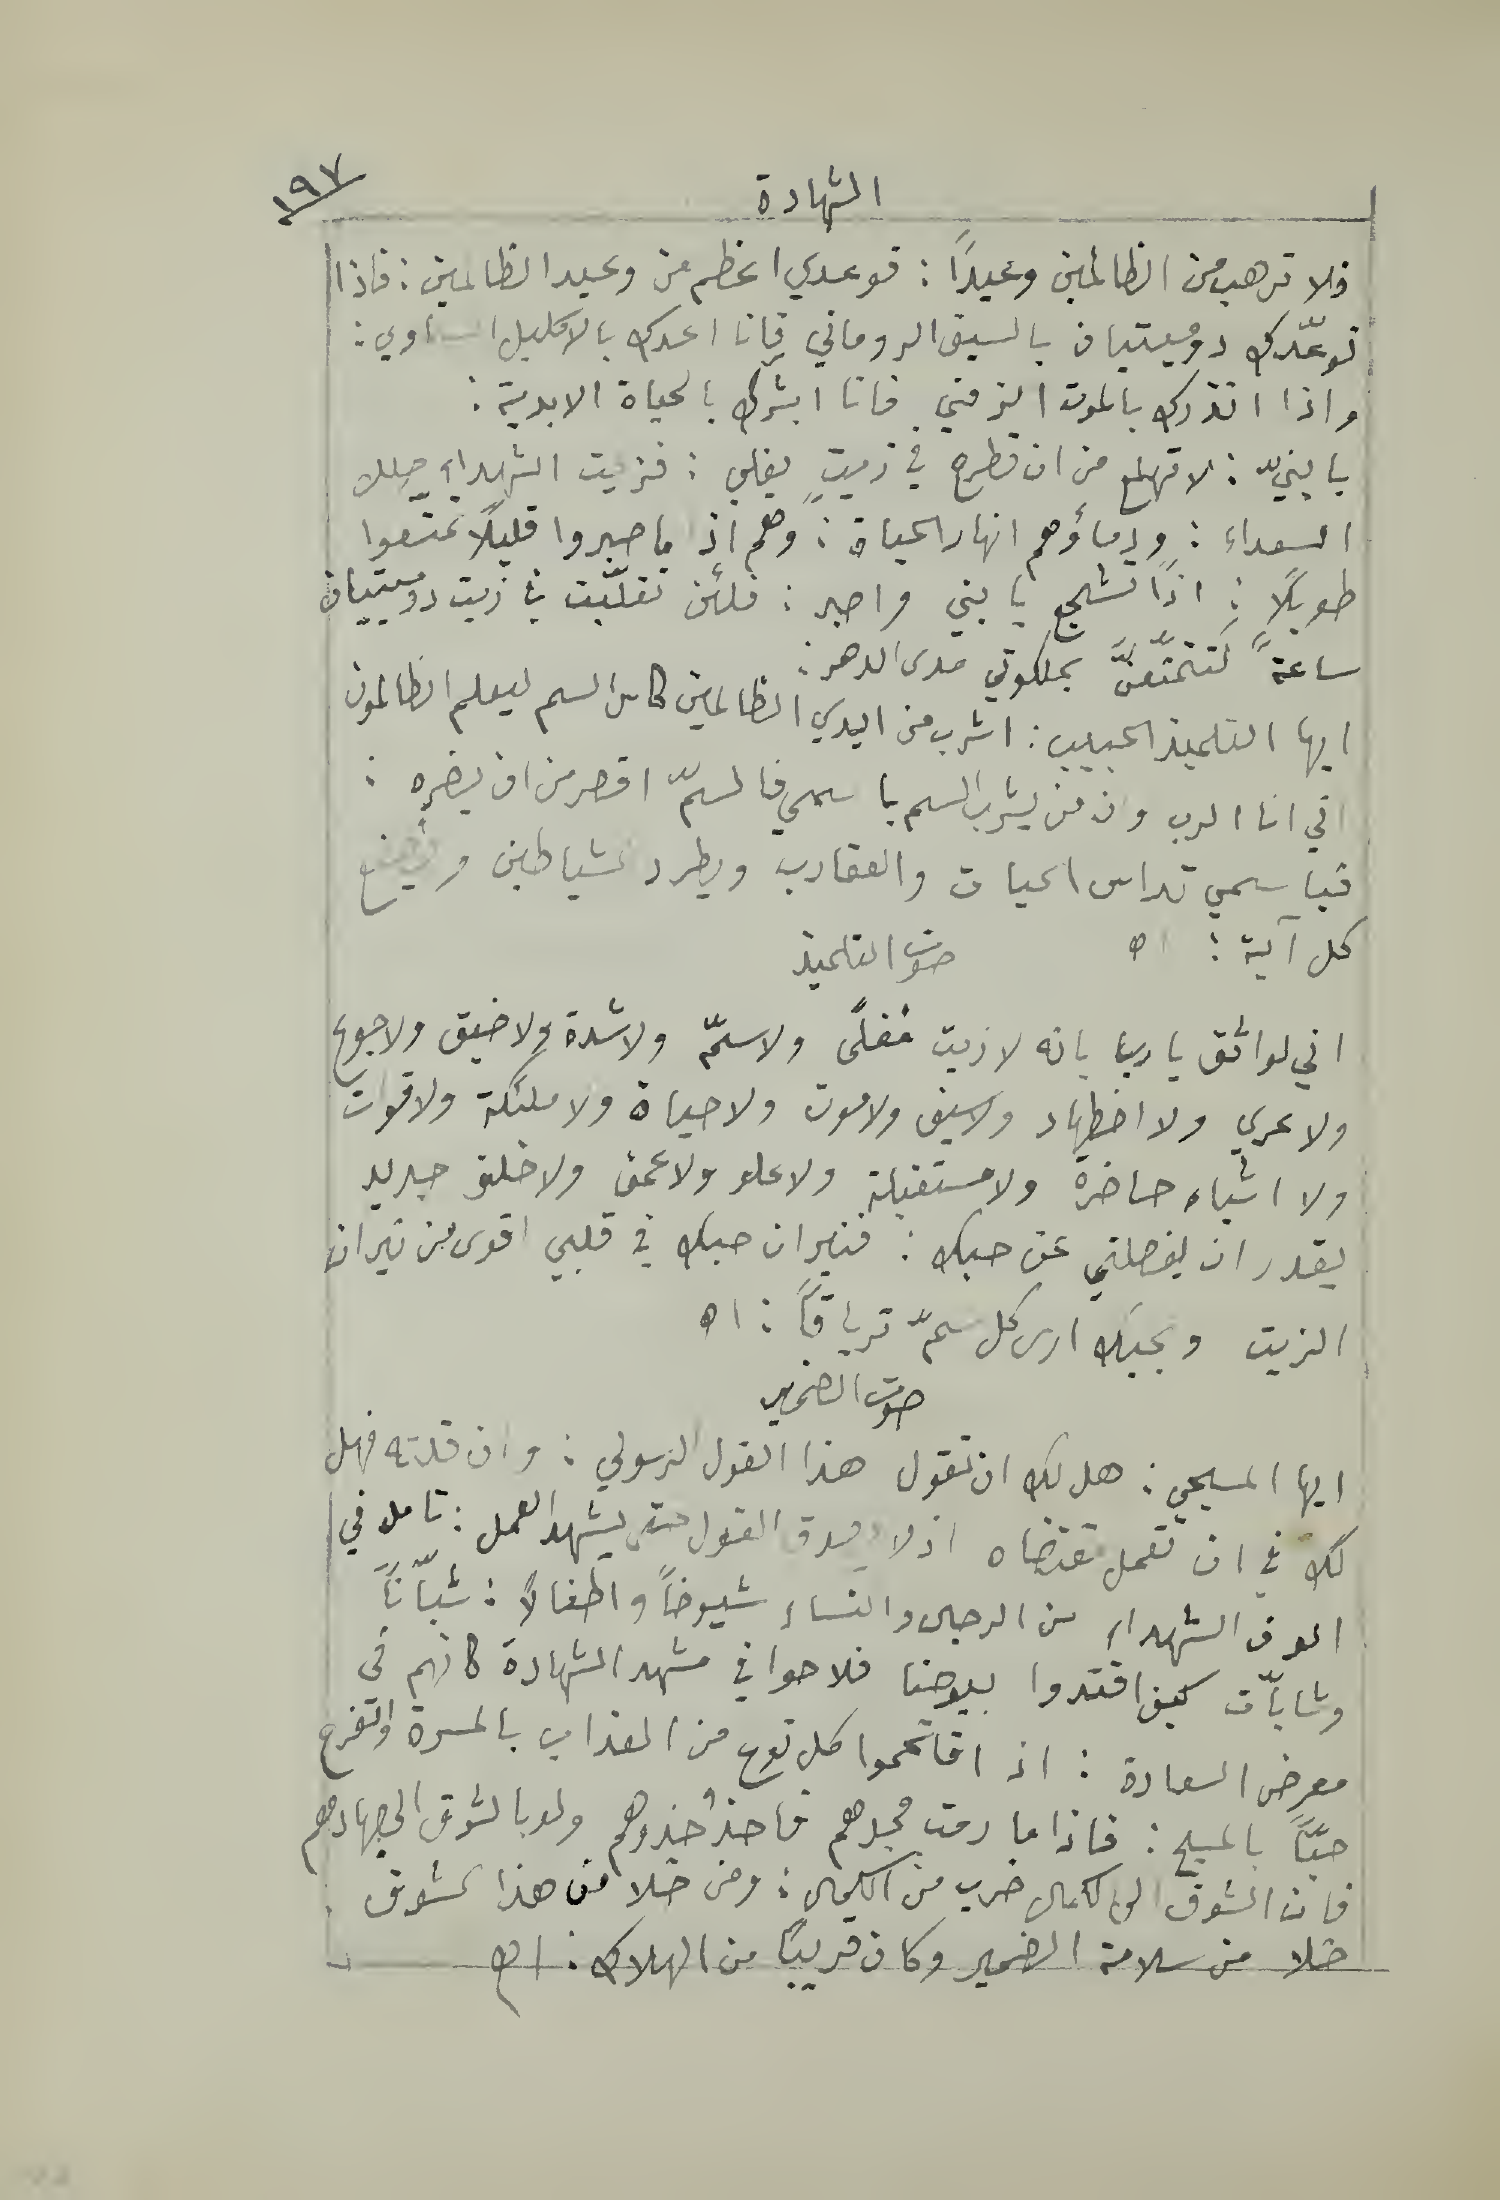 ١٩٧
الشهادة
فلا ترهب من الظالمين وعيدًا : فوعدي اعظم من وعيد الظالمين : فاذا
توعّدك دوميتيان بالسيف الروماني فانا اعدك بالاكليل السماوي :
واذا انذرك بالموت الزمني فانا ابشرك بالحياة الابدية :
يا بنيّ : لا تهلع من ان تطرح في زيتٍ يغلي : فزيت الشهداء
السعداء : ودماؤهم انهار الحياة : وهم اذ ما صبروا قليلًا تمتعوا
طويلًا : اذًا تشجع يا بني واصبر : فلئن تقلّبت في زيت دوميتيان
ساعةً لتتمتّعنَّ بملكوتي مدى الدهر :
ايها التلميذ الحبيب : اشرب من ايدي الظالمين كاس السم ليعلم الظالمون
اني انا الرب وان من يشرب السم باسمي فالسمّ اقصر من ان يضره :
فباسمي تداس الحيات والعقارب ويطرد الشياطين
كل آية : اه
صوت التلميذ
اني لواثق يا رب بانه لا زيت مُغلًى ولا سمّ ولا شدة ولا ضيق ولا جوع
ولا عري ولا اضطهاد ولا سيف ولا موت ولا حياة ولا ملئكة ولا قوات
ولا اشياء حاضرة ولا مستقبلة ولا علو ولا عمق ولا خلق جديد
يقدر ان يفصلني عن حبك : فنيران حبك في قلبي اقوى من نيران
الزيت وبحبك ارى كل سمّ ترياقًا : اه
صوت الضمير
ايها المسيحي : هل لك ان تقول هذا القول الرسولي : وان قلته فهل
لك في ان تعمل بمقتضاه اذ لا يصدق القول حتى يشهد العمل : تامل في
الوف الشهداء من الرجال والنساء شيوخًا واطفالًا : شبّانًا
وشابّات كيف اقتدوا بيوحنا فلاحوا في مشهد الشهادة كانهم في
معرض السعادة : اذ اقتحموا كل نوع من العذاب بالمسرة والفرح
حبًّا بالمسيح : فاذا ما رمت مجدهم فاحذُ حذوهم ولو بالشوق الى جهادهم
فان الشوق الى الكمال ضرب من الكمال : ومن خلا من هذا الشوق
خلا من سلامة الضمير وكان قريبًا من الهلاك : اه